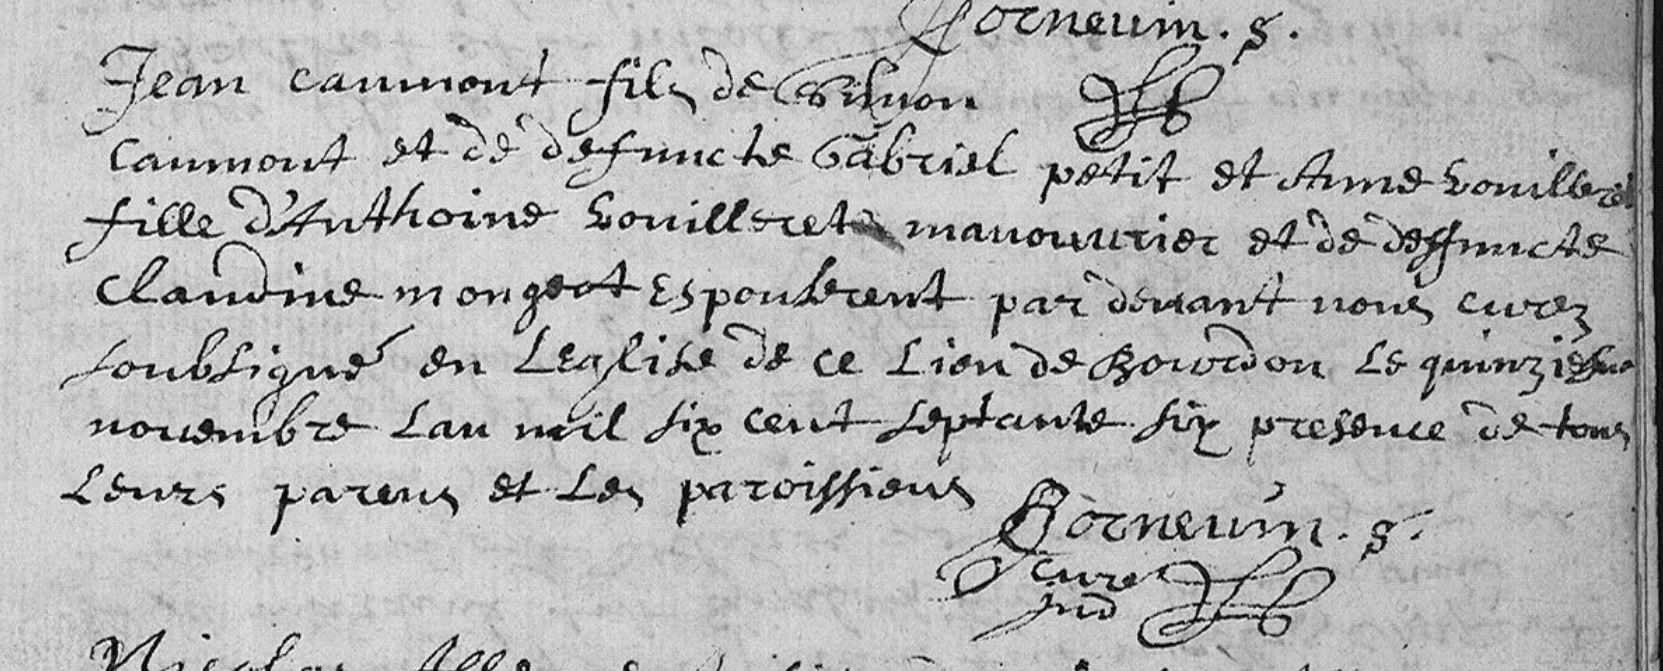 Borneuin. s.
Jean caumont fils de Simon
caumont et de defuncte Gabriel petit et Anne bouilleret
fille d'Anthoine bouilleret manouurier et de deffuncte
Claudine mongeot Espouserent par deuant nous curez
soubsigné en Leglise de ce Lieu de Bourdon Le quinziesme
nouembre Lan mil six cent septante six presence de tous
Leurs parens et Les paroissiens
Borneuin. s.
curé
jnd
Nicolas